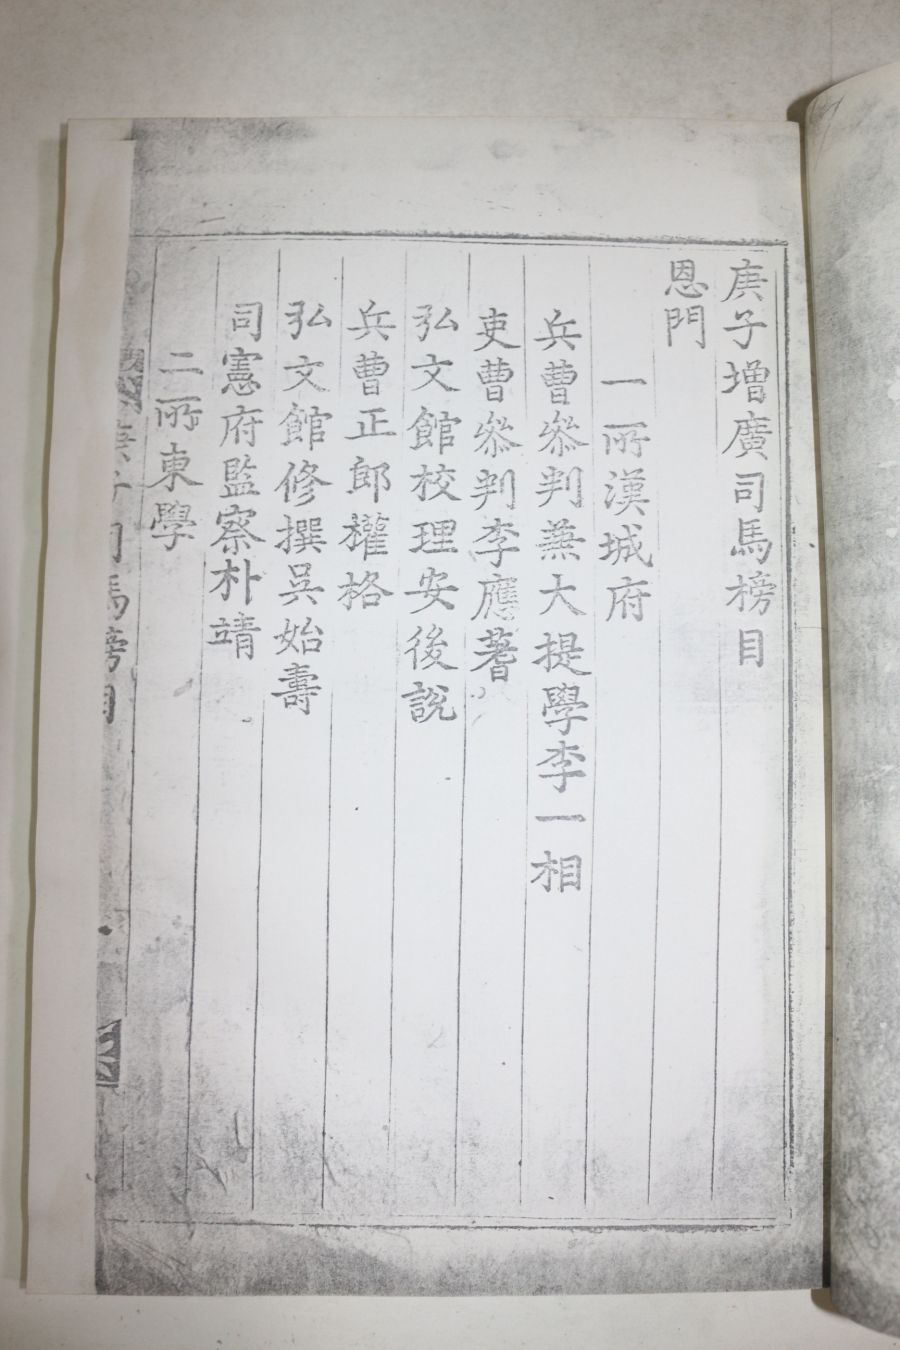 庚子增廣司馬榜目
恩門
一所漢城府
兵曹叅判兼大提學李一相
吏曹叅判李應蓍
弘文館校理安後說
兵曹正郎權格
弘文館修撰吳始壽
司憲府監察朴靖
二所東學
司馬榜目